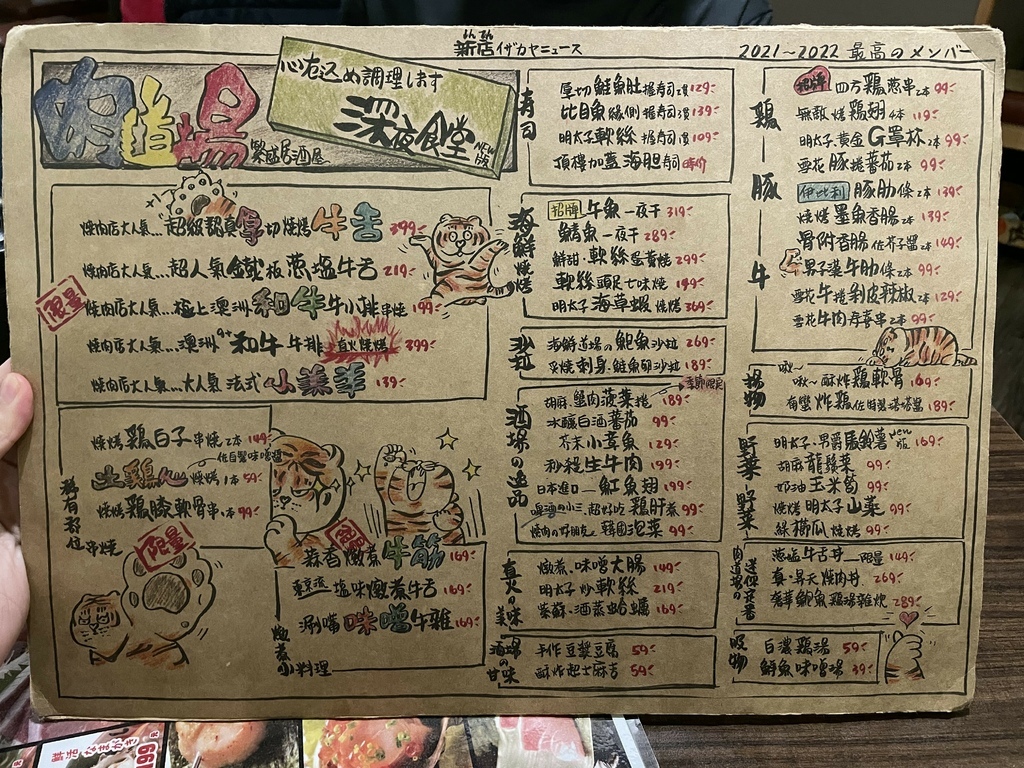 新店 イザカヤニュース
2021～2022 最高のメンバー
肉道場
繁盛居酒屋
心を込め調理します
深夜食堂
NEW版
燒肉店大人氣...超級認真厚切燒烤牛舌 399
燒肉店大人氣...超人氣鐵板蔥塩牛舌 219
限量
燒肉店大人氣...極上澳洲和牛牛小排串燒 199
燒肉店大人氣...澳洲9+和牛牛排 直火燒烤 399
燒肉店大人氣...大人氣法式小羔羊 139
稀有部位串燒
燒烤雞白子串燒2本 149
佐自製味噌醬
土雞心 燒烤1本 59
燒烤雞膝軟骨串2本 99
限量
限量
蒜香燉煮牛筋 169
東京流 塩味燉煮牛舌 169
涮嘴味噌牛雜 169
燉煮小料理
寿司
厚切鮭魚肚握寿司2貫 129
比目魚緣側握寿司2貫 139
明太子軟絲握寿司2貫 109
頂樓加蓋海胆寿司 時价
海鮮燒烤
招牌 牛魚一夜干 319
鯖魚一夜干 289
鮮甜軟絲蛋黃燒 299
軟絲頭足七味燒 149
明太子海草蝦燒烤 369
沙拉
海鮮道場の鮑魚沙拉 269
炙燒刺身鮭魚卵沙拉 189
酒場の逸品
季節限定
胡麻蟹肉菠菜捲 189
冰釀白酒蕃茄 99
芥末小章魚 129
秒殺生牛肉 199
日本進口—魟魚翅 199
啤酒の小三 超好吃 雞肝煮 99
燒肉の好朋友 韓國泡菜 99
真火の美味
燉煮味噌大腸 149
明太子炒軟絲 219
紫蘇酒蒸蛤蠣 169
酒場の甘味
手作豆漿豆腐 59
酥炸起士麻吉 59
鶏
豚
牛
招牌 四方鶏蔥串2本 99
無敵燒鶏翅4本 119
明太子黃金G罩杯2本 99
雪花豚捲蕃茄2本 99
伊比利 豚肋條2本 139
燒烤墨魚香腸2本 139
骨附香腸佐芥子醬2本 149
男子漢牛肋條2本 99
雪花牛捲剝皮辣椒2本 129
雪花牛肉壽喜串2本 99
揚物
啾～
啾～酥炸鶏軟骨 169
南蠻炸鶏佐自製塔塔醬 189
野菜野菜
明太子男爵馬鈴薯 new版 169
胡麻龍鬚菜 99
奶油玉米筍 99
燒烤明太子山藥 99
綠櫛瓜燒烤 99
蔥塩牛舌丼—限量 149
真·昇天燒肉丼 269
奢華鮑魚鶏湯雜炊 289
吸物
白濃鶏湯 59
鮮魚味噌湯 39
鮮活